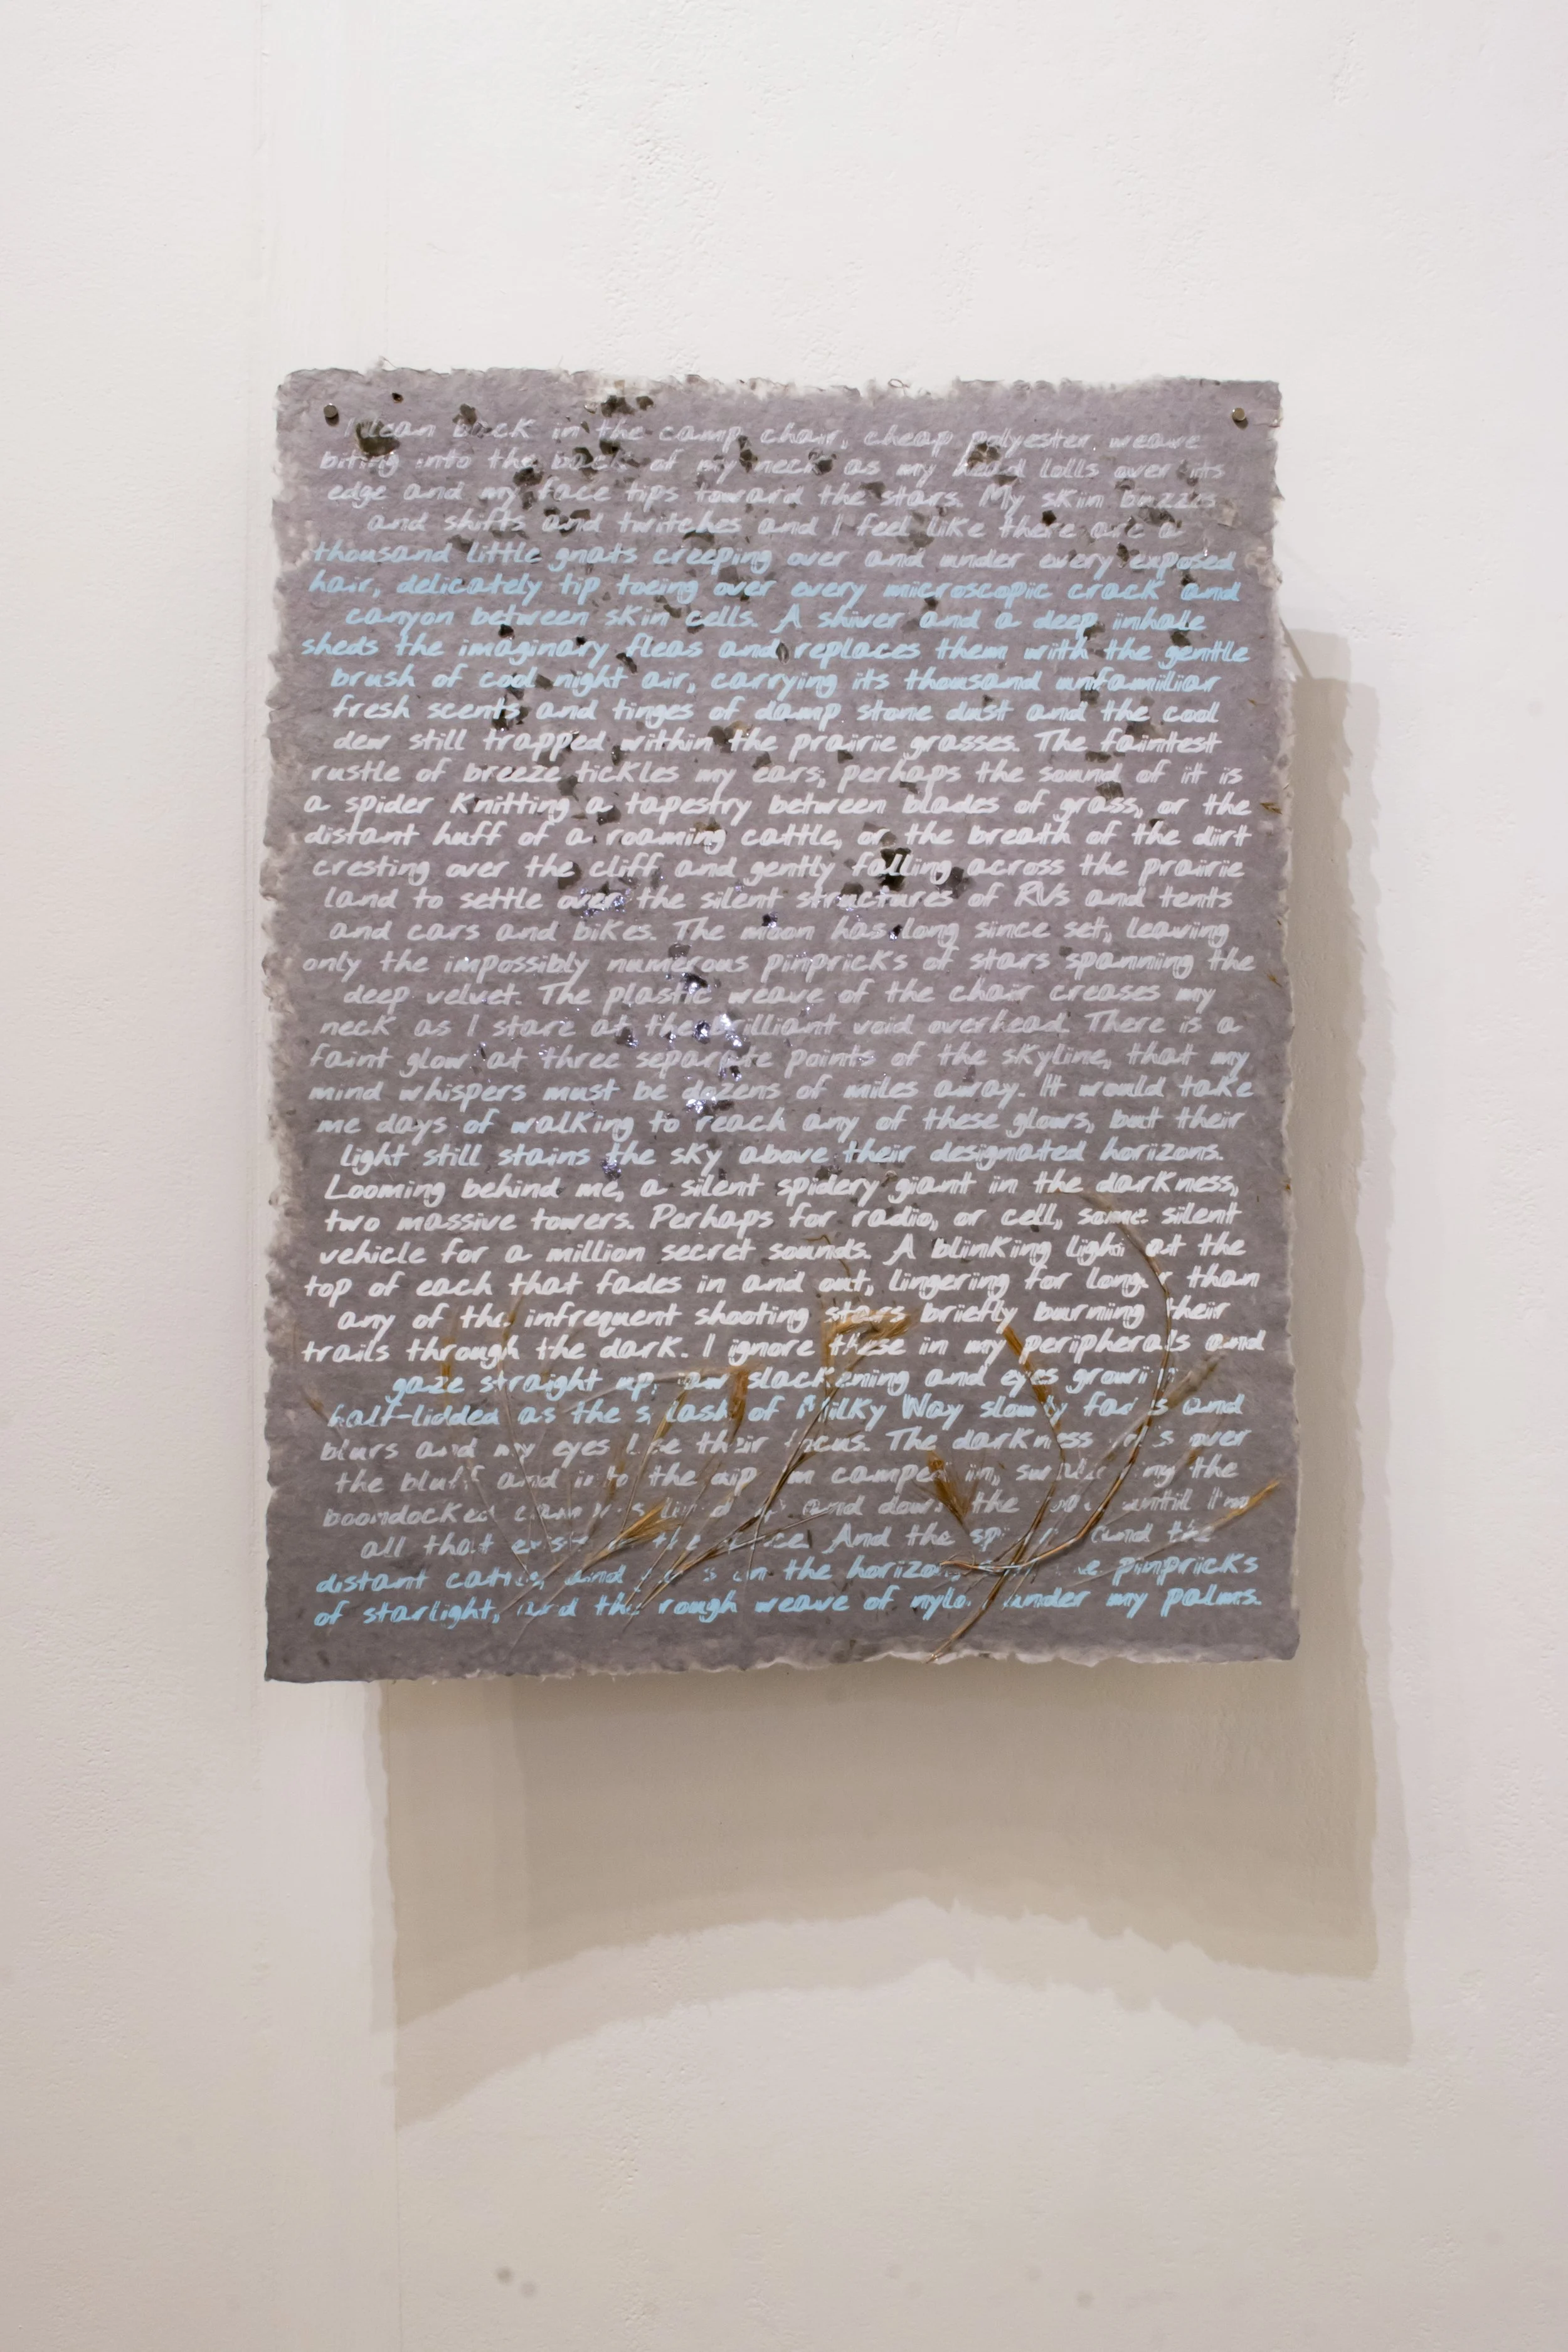 I lean back in the camp chair, cheap polyester weave
biting into the back of my neck as my head lolls over its
edge and my face tips toward the stars. My skin buzzes
and shifts and twitches and I feel like there are a
thousand little gnats creeping over and under every exposed
hair, delicately tip toeing over every microscopic crack and
canyon between skin cells. A shiver and a deep inhale
sheds the imaginary fleas and replaces them with the gentle
brush of cool night air, carrying its thousand unfamiliar
fresh scents and tinges of damp stone dust and the cool
dew still trapped within the prairie grasses. The faintest
rustle of breeze tickles my ears; perhaps the sound of it is
a spider knitting a tapestry between blades of grass, or the
distant huff of a roaming cattle, or the breath of the dirt
cresting over the cliff and gently falling across the prairie
land to settle over the silent structures of RVs and tents
and cars and bikes. The moon has long since set, leaving
only the impossibly numerous pinpricks of stars spanning the
deep velvet. The plastic weave of the chair creases my
neck as I stare at the brilliant void overhead. There is a
faint glow at three separate points of the skyline, that my
mind whispers must be dozens of miles away. It would take
me days of walking to reach any of these glows, but their
light still stains the sky above their designated horizons.
Looming behind me, a silent spidery giant in the darkness,
two massive towers. Perhaps for radio, or cell, some silent
vehicle for a million secret sounds. A blinking light at the
top of each that fades in and out, lingering for longer than
any of the infrequent shooting stars briefly burning their
trails through the dark. I ignore these in my peripherals and
gaze straight up, jaw slackening and eyes growing
half-lidded as the splash of Milky Way slowly fades and
blurs and my eyes lose their focus. The darkness over
the bluff and into the camped in, the
boondocked and down the until I'm
all that And the and the
distant cattle, and on the horizon pinpricks
of starlight, and the rough weave of nylon under my palms.